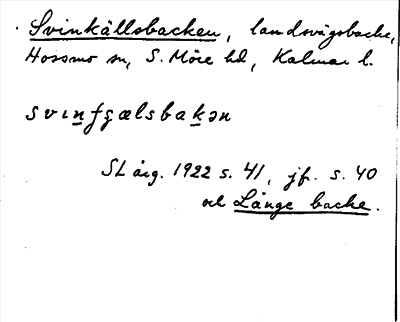 Svinkällsbacken, landsvägsbacke,
Hossmo sn, S. Möre hd, Kalmar l.
svınfgælsbakən
SL årg. 1922 s. 41, jf. s. 40
och Långe backe.